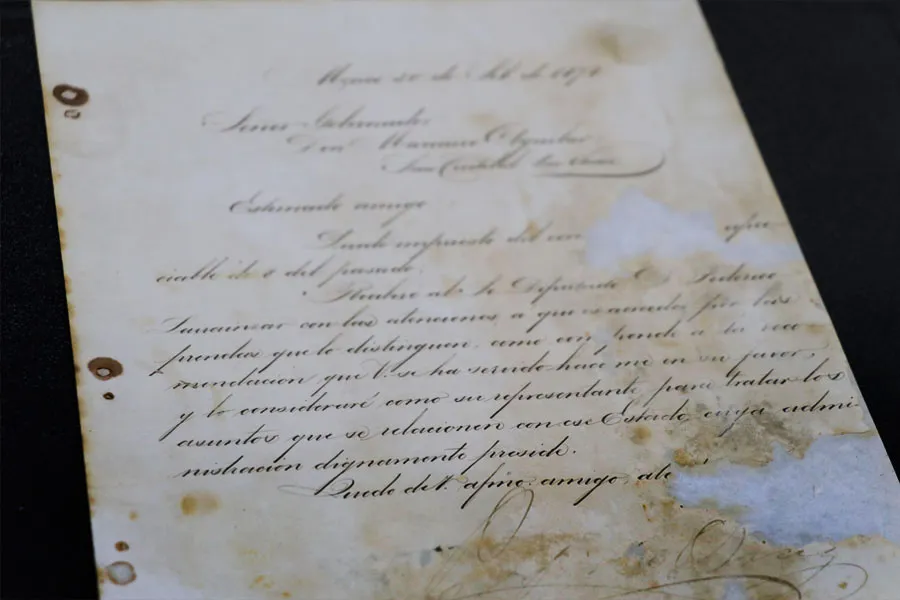 de 187
Señor Gobernador
Don Mariano
San Cristobal
Estimado amigo
impuesto del con apre-
ciable de 8 del pasado.
Recibiré al Sr. Diputado D. Federico
Larrainzar con las atenciones a que es acreedor por las
prendas que lo distinguen, como corresponde a la reco-
mendacion que V. se ha servido hacerme en su favor,
y lo consideraré como su representante para tratar los
asuntos que se relacionen con ese Estado, cuya admi-
nistracion dignamente preside.
Quedo de V. afmo. amigo, ate
Diaz